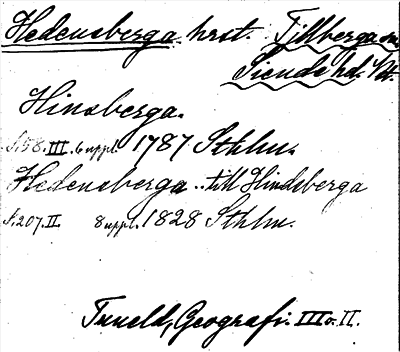 Hedensberga hrst. Tillberga sn.
Siende hd. Vstm.
Hinsberga.
s. 58. III. 6 uppl. 1787 Sthlm.
Hedensberga .. till Hindsberga
s. 207. II. 8 uppl. 1828 Sthlm.
Tuneld, Geografi. III o. II.